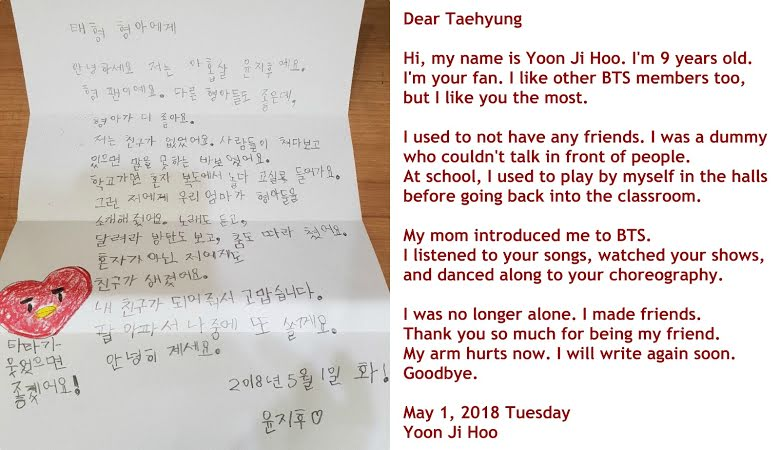 태형 형아에게
안녕하세요 저는 아홉살 윤지후예요.
형 팬이에요. 다른 형아들도 좋은데,
형아가 더 좋아요.
저는 친구가 없었어요. 사람들이 쳐다보고
있으면 말을 못하는 바보였어요.
학교가면 혼자 복도에서 놀다 교실로 들어가요.
그런 저에게 우리엄마가 형아들을
소개해줬어요. 노래도 듣고,
달려라 방탄도 보고, 춤도 따라 췄어요.
혼자가 아닌 저에게도
친구가 생겼어요.
내 친구가 되어줘서 고맙습니다.
팔 아파서 나중에 또 쓸게요.
안녕히 계세요.
2018년 5월 1일 화!
윤지후♡
타타가
웃었으면
좋겠어요!
Dear Taehyung
Hi, my name is Yoon Ji Hoo. I'm 9 years old.
I'm your fan. I like other BTS members too,
but I like you the most.
I used to not have any friends. I was a dummy
who couldn't talk in front of people.
At school, I used to play by myself in the halls
before going back into the classroom.
My mom introduced me to BTS.
I listened to your songs, watched your shows,
and danced along to your choreography.
I was no longer alone. I made friends.
Thank you so much for being my friend.
My arm hurts now. I will write again soon.
Goodbye.
May 1, 2018 Tuesday
Yoon Ji Hoo